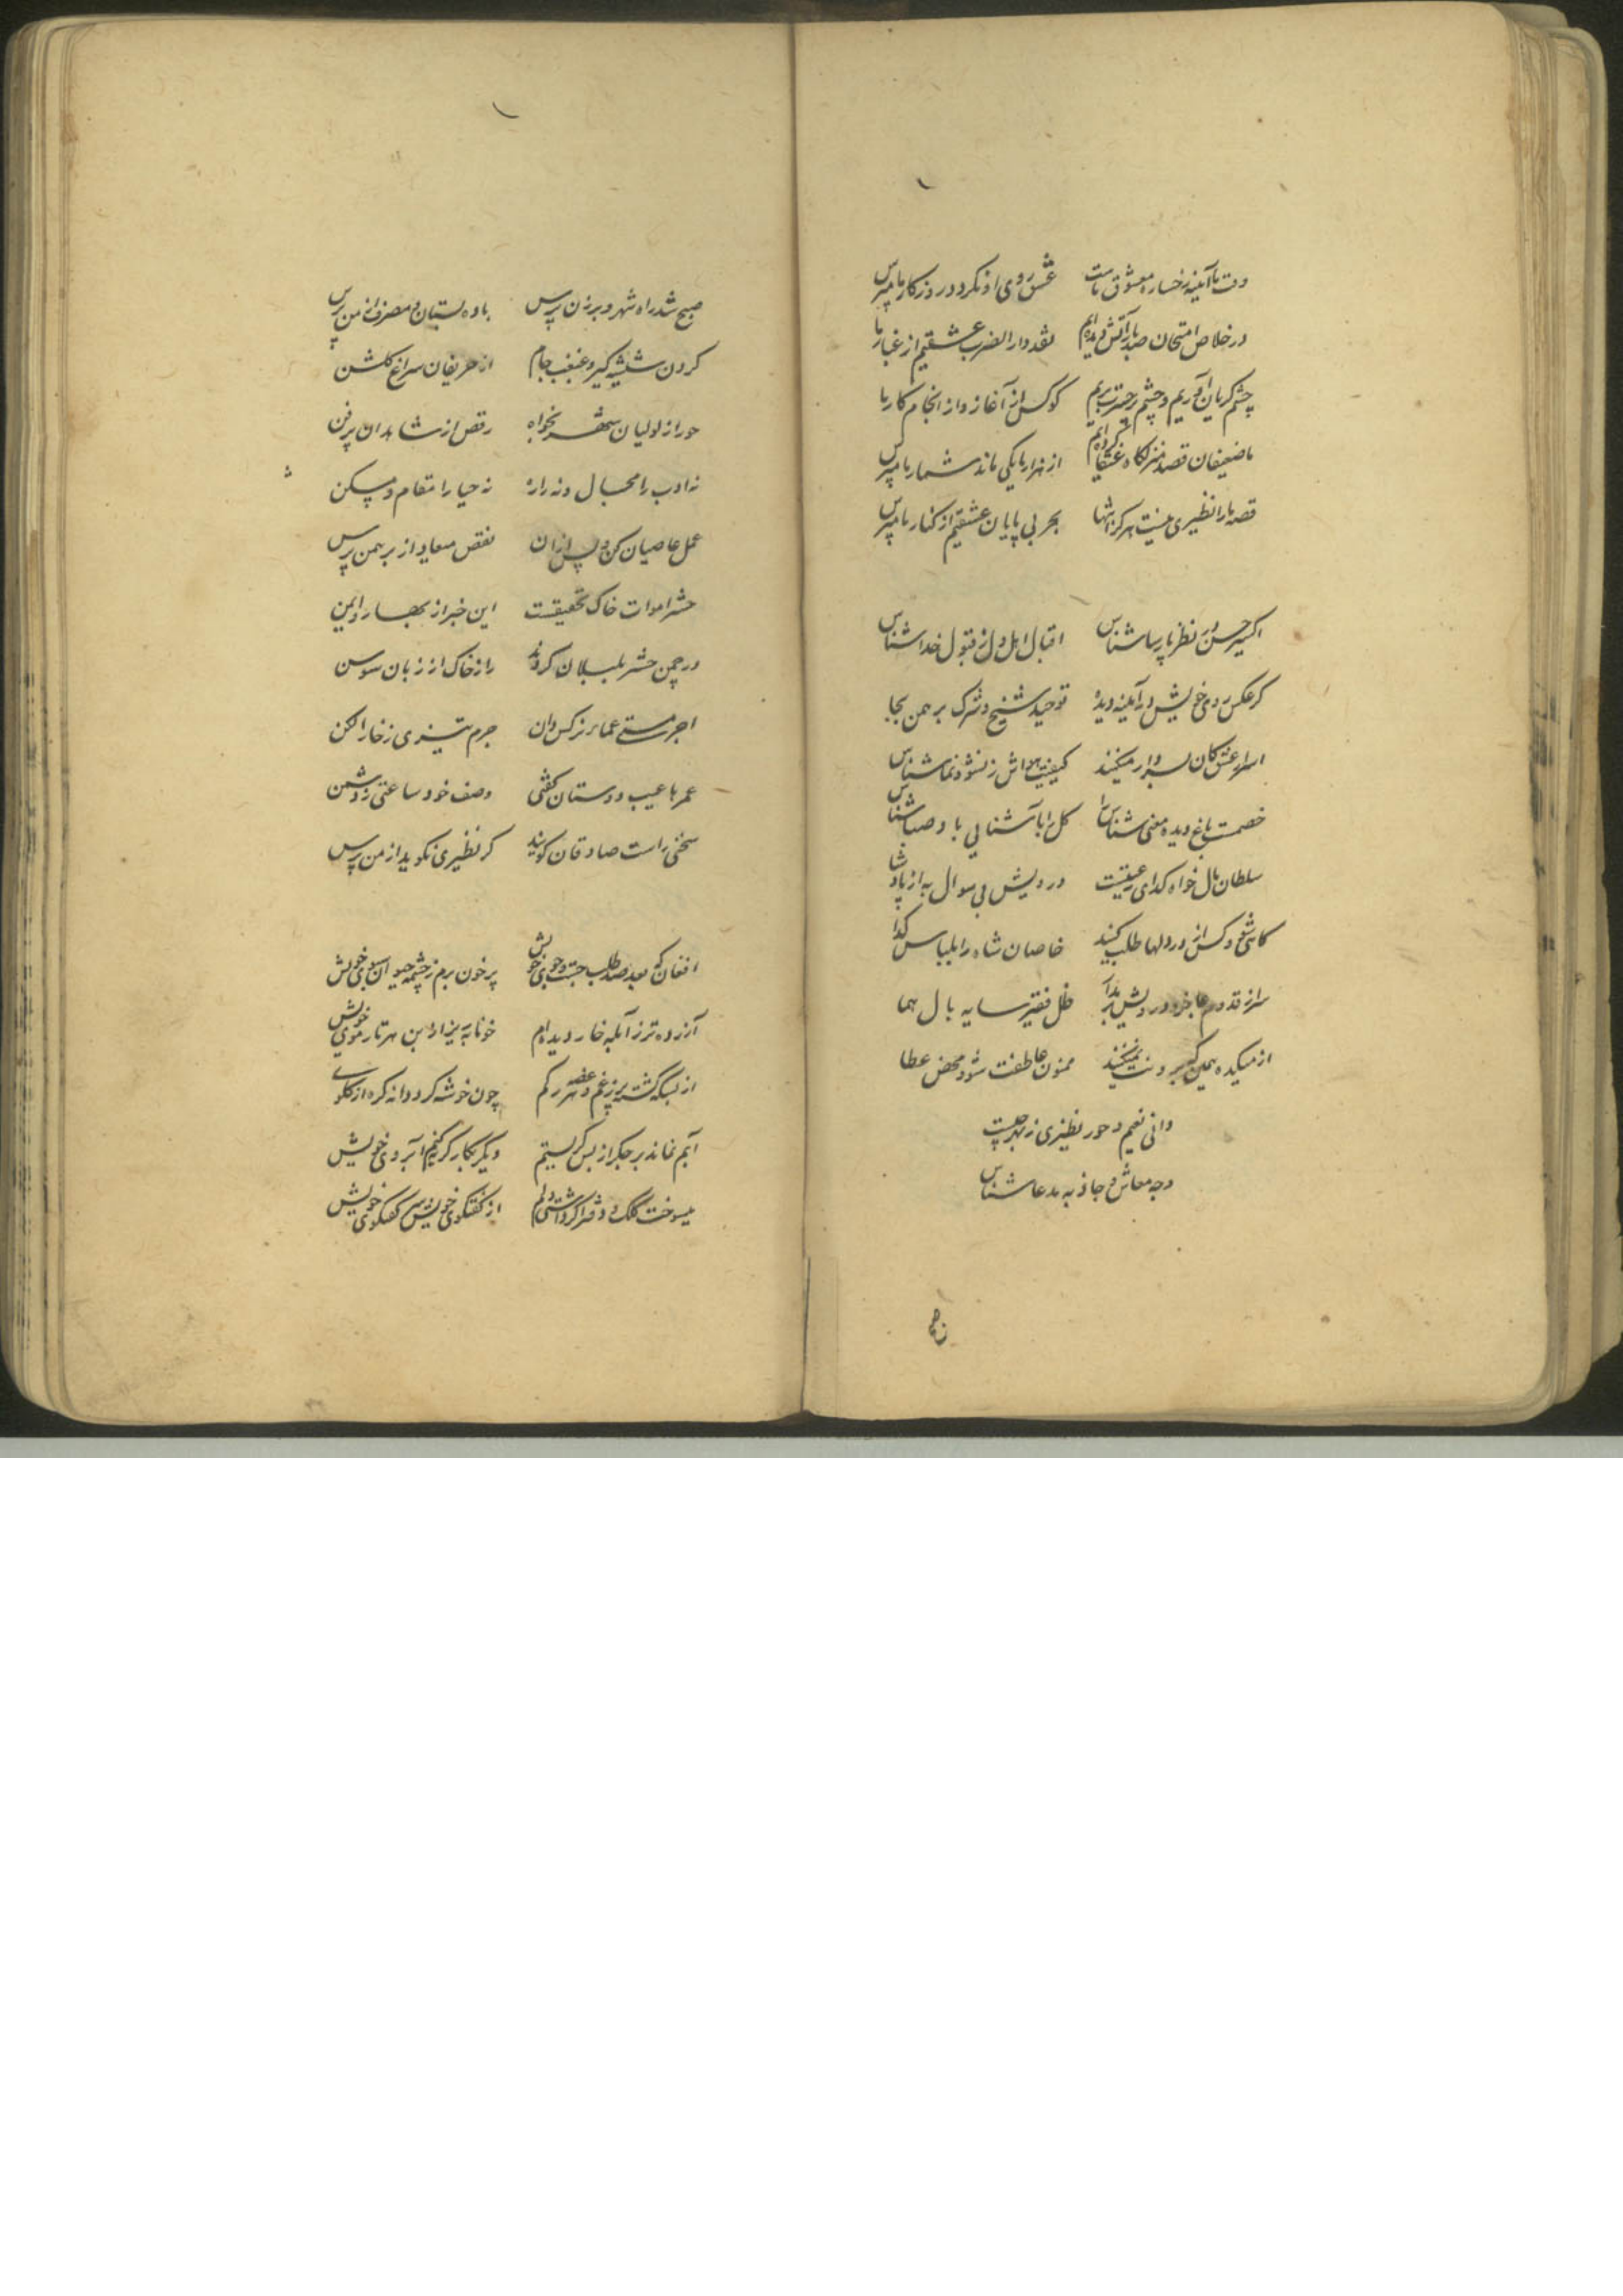 وقت ما آئینه رخساره معشوق ماست عکس روی او نکر در روزکار ما مپرس
در خلاص امتحان صد بار آتش دیده‌ایم نقد دار الضرب عشقیم از عیار ما
چشم کریان آوریم و چشم پر حسرت بریم کو کس از آغاز و از انجام کار ما
ما ضعیفان قصد منزلکاه عنقا کرده‌ایم از هزار ما یکی ماند شمار ما مپرس
قصه ما را نظیری نیست هرکز انتها بحر بی پایان عشقیم از کنار ما مپرس
اکسیر حسن در نظر پارسا شناس اقبال اهل دل ز قبول خدا شناس
کر عکس روی خویش در آئینه دیدهٔ توحید شیخ و شرک برهمن بجا
اسرار عشق کان بسر دار میکنند کیفیت هواش ز نشو و نما شناس
خصمست باغ دیده معنی شناس را کل را بآشنایی باد صبا شناس
سلطان مال خواه کدای رعیتست درویش بی سوال به از پادشا
کاهی شفیع و کس از در دلها طلب کنند خاصان شاه را بلباس کدا
سر از قدوم عاجز و درویش بر مدار ظل فقیر سایه بال هما
از میکده همین کیر و منت نمیکنند ممنون عاطفت شو و محض عطا
دانی نعیم و حور نظیری ز بهر چیست
وجه معاش و جاذبه مدعا شناس
صبح
صبح شد راه شهر و برزن پرس باده بستان و مصرف از من پرس
کردن شیشه کیر و غبغب جام از حریفان سراغ کلشن
حور از لولیان شهر بخواه رقص از شاهدان پر فن
نه ادب را مجال و نه راز نه حیا را مقام و مسکن
عمل عاصیان کن و پس ازان نقص معاد از برهمن پرس
حشر اموات خاک تحقیقست این خبر از بهار و ایمن
در چمن حشر بلبلان کردند راز خاک از زبان سوسن
اجر مستی عما ز نرکس دان جرم تیزی ز خار افکن
عمرها عیب دوستان کفتی وصف خود ساعتی ز دشمن
سخنی راست صادقان کویند کر نظیری نکوید از من پرس
افغان که بعد صد طلب جست و جوی خویش پر خون برم ز چشمه حیوان سبوی خویش
آزرده‌تر ز آبله خار دیده‌ام خونابه ریزد از بن هر تار موی خویش
از بسکه کشته پر ز غم و غصه هر رکم چون خوشه کرد دانه کره از کلوی
آبم نماند بر جکر از بس کریستم دیکر بکار کریه کنم آبروی خویش
میسوخت کلک و دفتر اکر داشتی دلم از کفتکوی خویش کفتکوی خویش